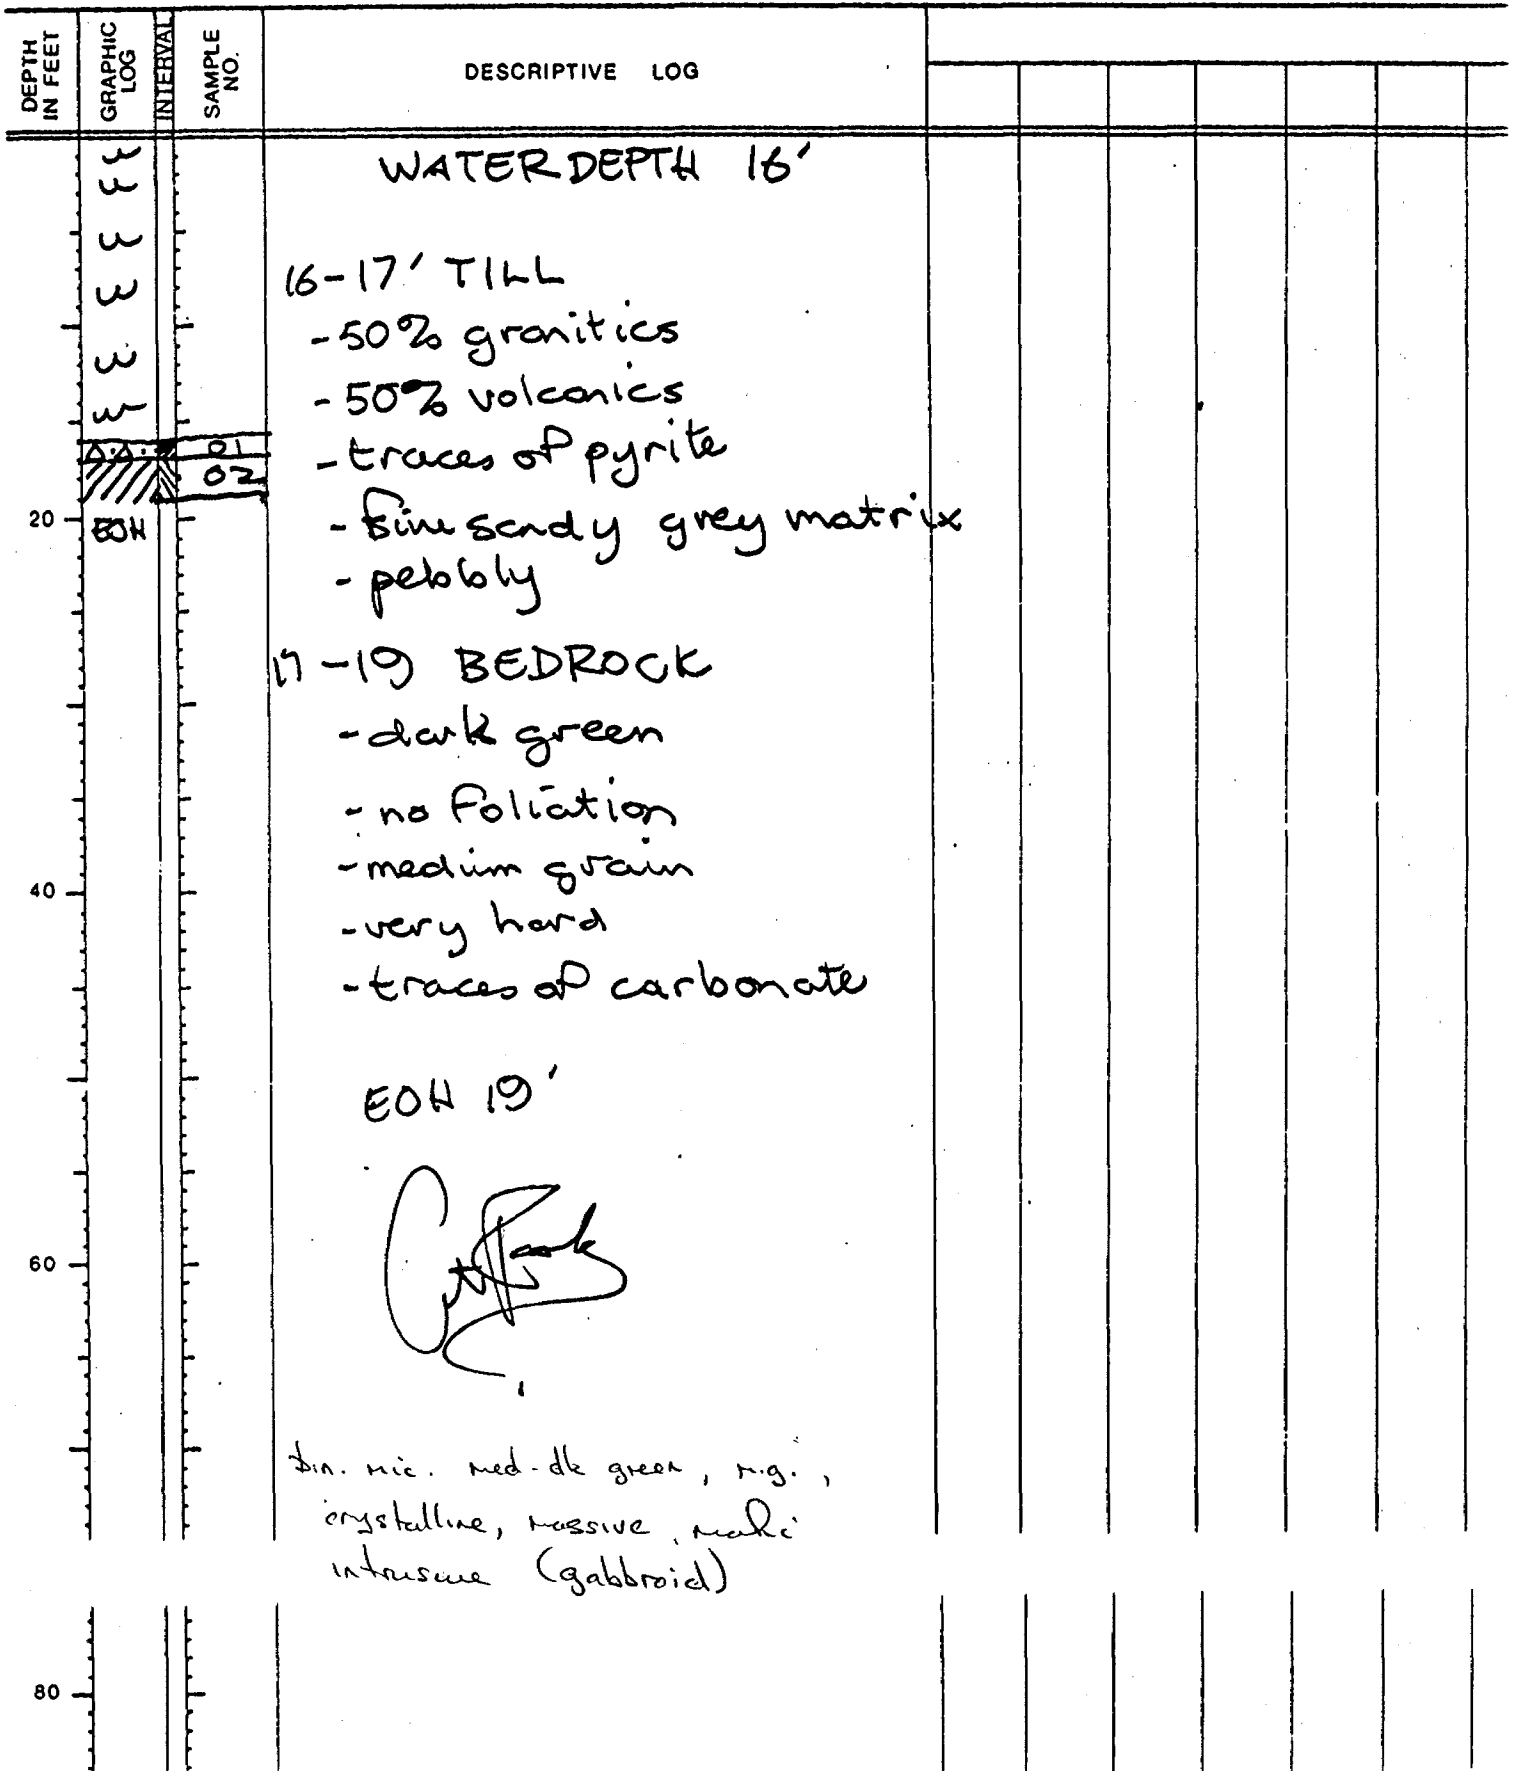 DEPTH IN FEET
GRAPHIC LOG
INTERVAL
SAMPLE NO.
DESCRIPTIVE LOG
WATER DEPTH 16'
16-17' TILL
-50% granitics
-50% volcanics
01
-traces of pyrite
02
20
EOH
-fine sandy grey matrix
-pebbly
17-19 BEDROCK
-dark green
-no foliation
-medium grain
40
-very hard
-traces of carbonate
EOH 19'
60
Bin. mic. med-dk green, m.g.,
crystalline, massive, mafic
intrusive (gabbroid)
80